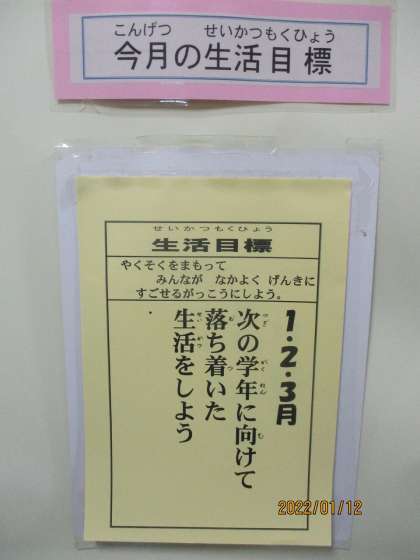 こんげつ せいかつもくひょう
今月の生活目標
せいかつもくひょう
生活目標
やくそくをまもって
みんなが なかよく げんきに
すごせるがっこうにしよう。
1・2・3月
次の学年に向けて
つぎ がくねん む
落ち着いた
お つ
生活をしよう
せいかつ
2022/01/12